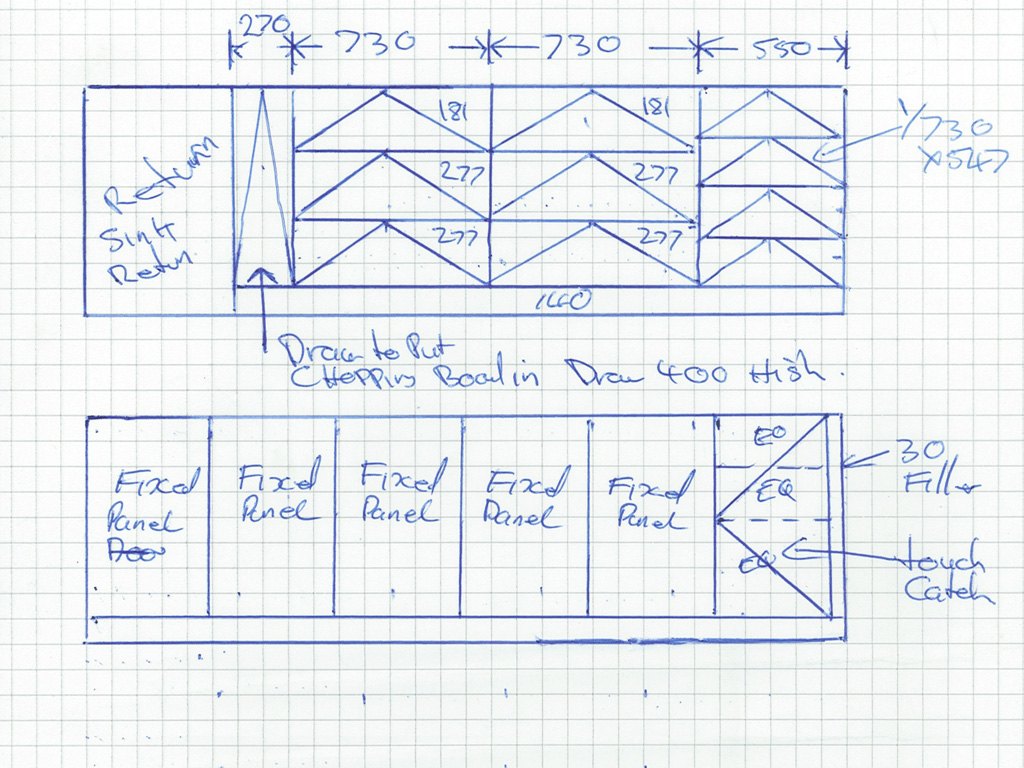 270
730
730
550
181
181
277
277
277
277
1/730
x547
Return
Sink
Return
Draw to Put
Chopping Board in Draw 400 High.
EQ
EQ
EQ
30
Filler
Fixed
Panel
Door
Fixed
Panel
Fixed
Panel
Fixed
Panel
Fixed
Panel
touch
Catch